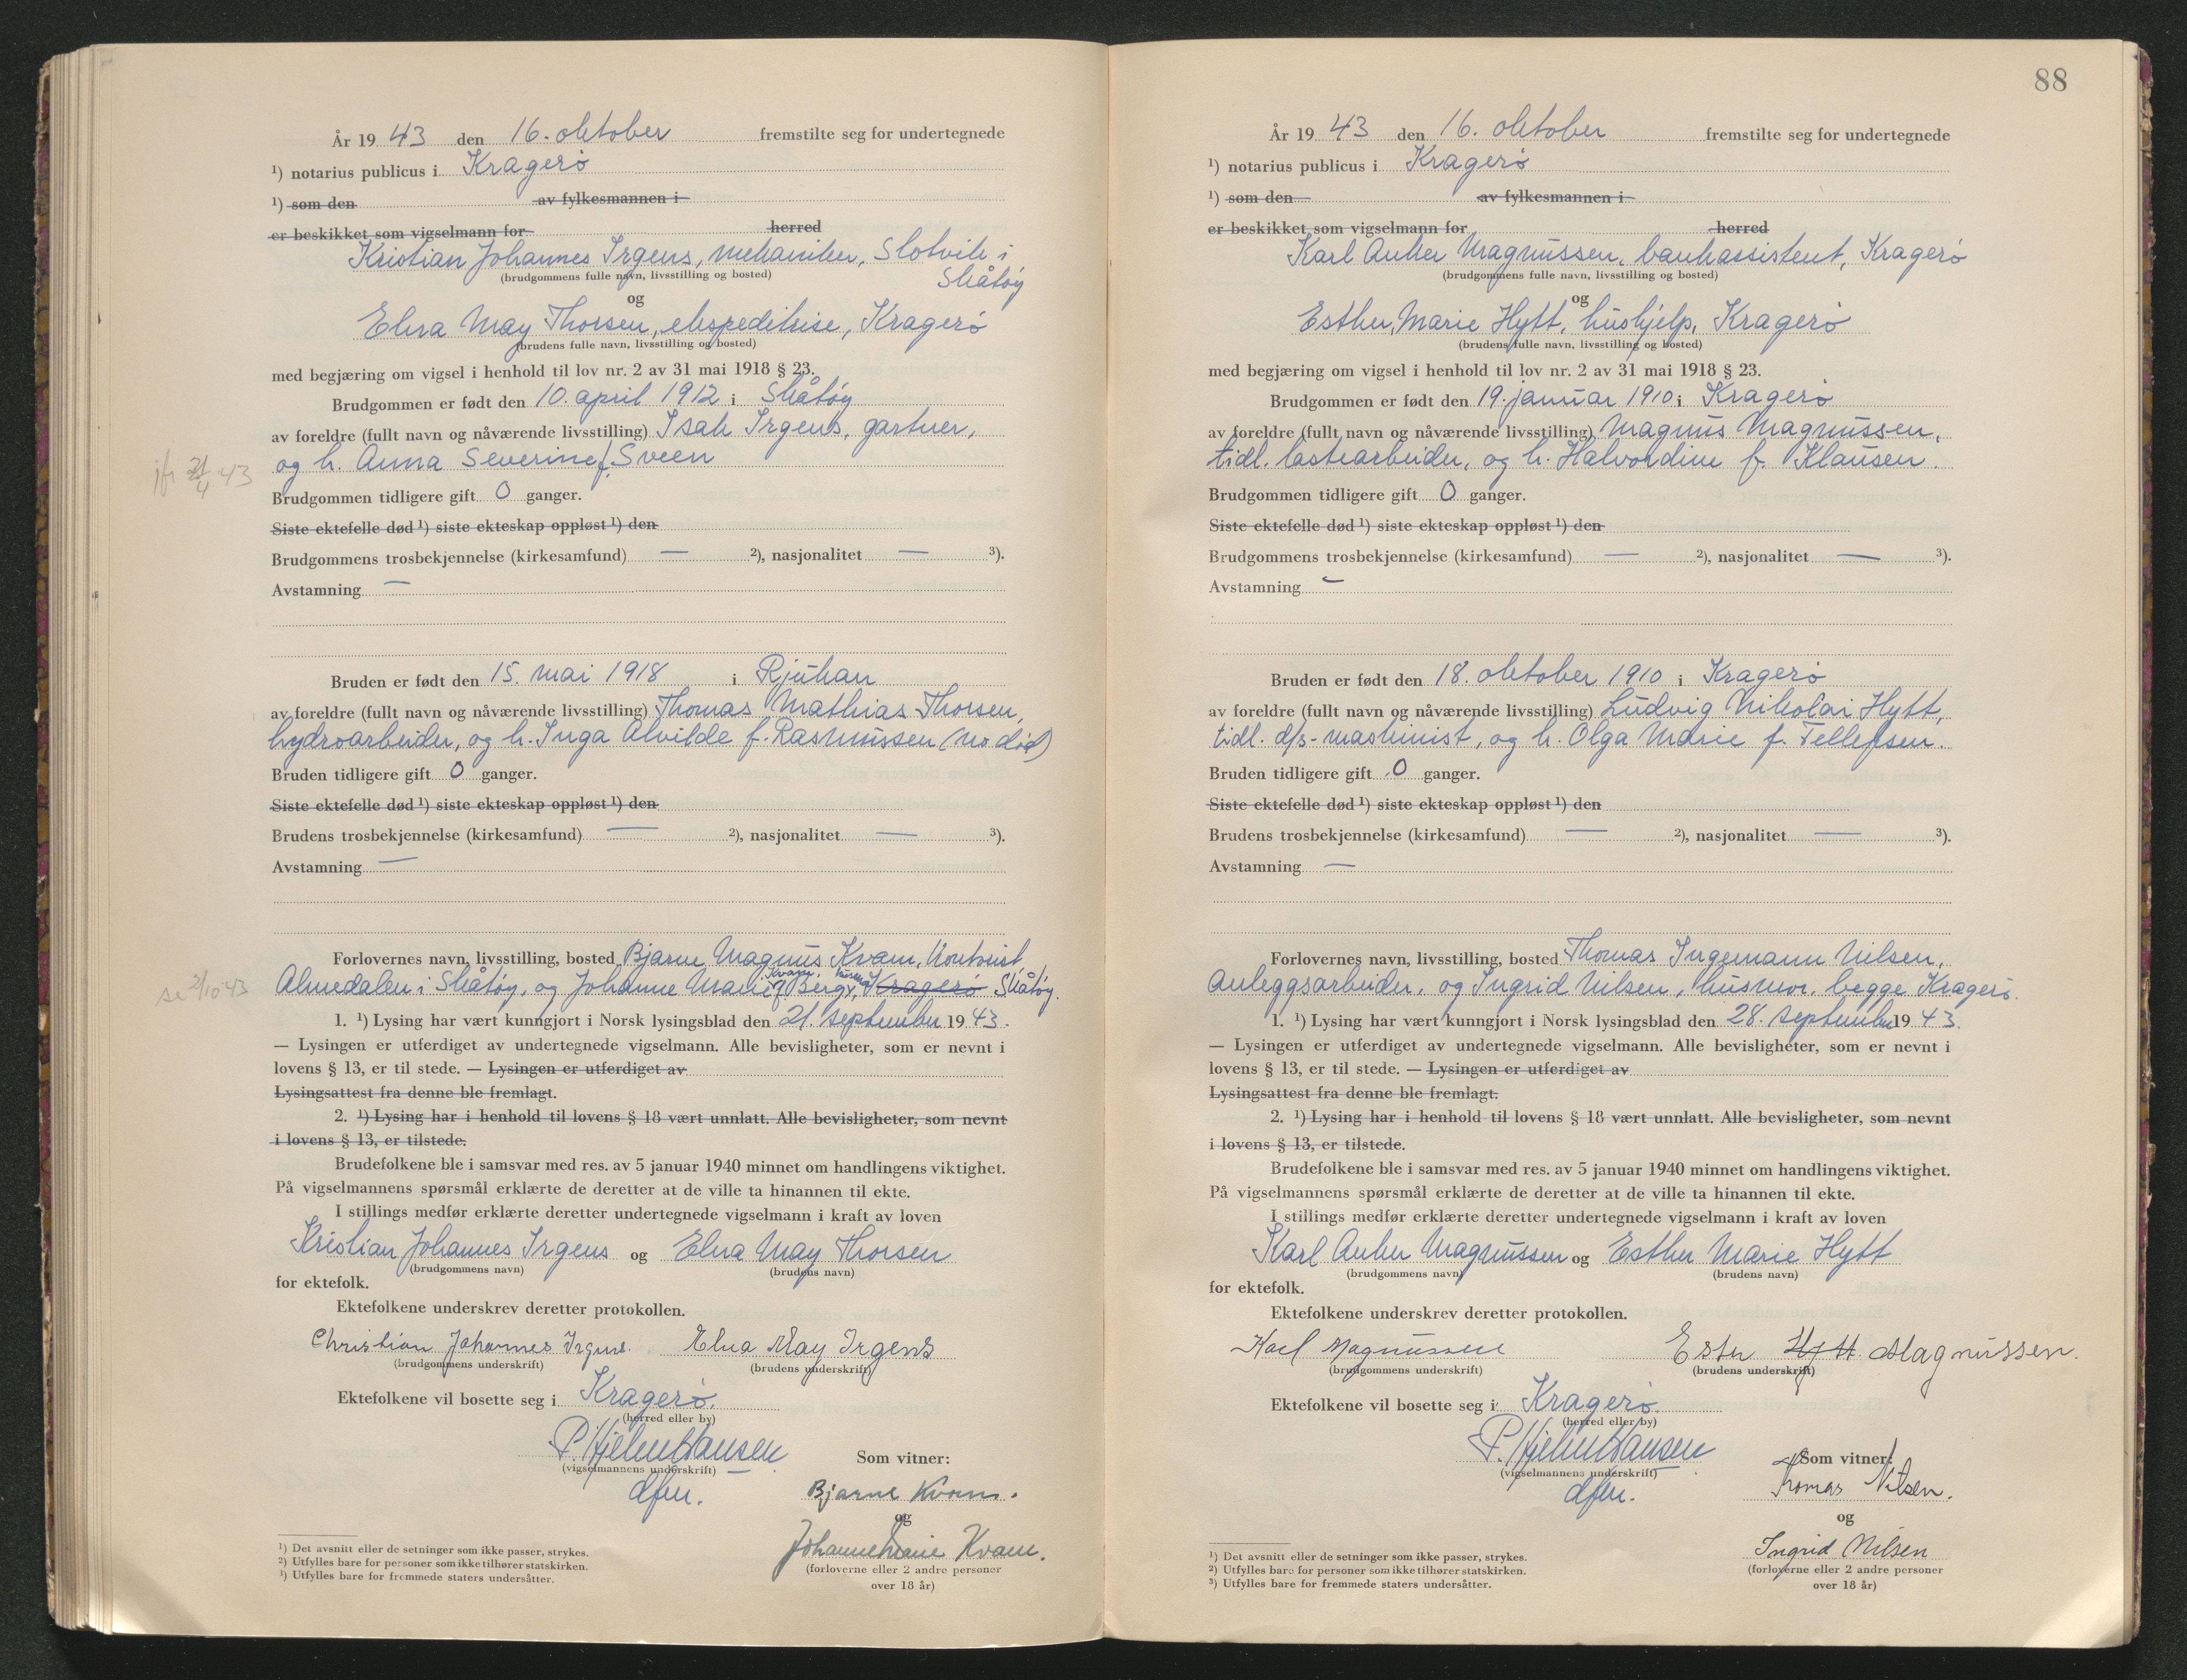 År 19 43 den 16. oktober fremstilte seg for undertegnede
¹) notarius publicus i Kragerø
¹) som den av fylkesmannen i
er beskikket som vigselmann for herred
Kristian Johannes Irgens, mekaniker, Slotvik i
Skåtøy
(brudgommens fulle navn, livsstilling og bosted)
og
Elna May Thorsen, ekspeditrise, Kragerø
(brudens fulle navn, livsstilling og bosted)
med begjæring om vigsel i henhold til lov nr. 2 av 31 mai 1918 § 23.
Brudgommen er født den 10. april 1912 i Skåtøy
av foreldre (fullt navn og nåværende livsstilling) Isak Irgens, gartner,
jfr 21/4 43
og h. Anna Severine f. Sveen
Brudgommen tidligere gift 0 ganger.
Siste ektefelle død ¹) siste ekteskap oppløst ¹) den
Brudgommens trosbekjennelse (kirkesamfund) — ²), nasjonalitet — ³).
Avstamning —
Bruden er født den 15. mai 1918 i Rjukan
av foreldre (fullt navn og nåværende livsstilling) Thomas Mathias Thorsen,
hydroarbeider, og h. Inga Alvilde f. Rasmussen (no død)
Bruden tidligere gift 0 ganger.
Siste ektefelle død ¹) siste ekteskap oppløst ¹) den
Brudens trosbekjennelse (kirkesamfund) — ²), nasjonalitet — ³).
Avstamning —
Forlovernes navn, livsstilling, bosted Bjarne Magnus Kvam, kontorist
Kvam, husm.
se 2/10 43
Almedalen i Skåtøy, og Johanne Marie f. Berg, Kragerø Skåtøy.
1. ¹) Lysing har vært kunngjort i Norsk lysingsblad den 21. september 19 43.
— Lysingen er utferdiget av undertegnede vigselmann. Alle bevisligheter, som er nevnt i
lovens § 13, er til stede. — Lysingen er utferdiget av
Lysingsattest fra denne ble fremlagt.
2. ¹) Lysing har i henhold til lovens § 18 vært unnlatt. Alle bevisligheter, som nevnt
i lovens § 13, er tilstede.
Brudefolkene ble i samsvar med res. av 5 januar 1940 minnet om handlingens viktighet.
På vigselmannens spørsmål erklærte de deretter at de ville ta hinannen til ekte.
I stillings medfør erklærte deretter undertegnede vigselmann i kraft av loven
Kristian Johannes Irgens og Elna May Thorsen
(brudgommens navn) (brudens navn)
for ektefolk.
Ektefolkene underskrev deretter protokollen.
Christian Johannes Irgens. Elna May Irgens
(brudgommens underskrift) (brudens underskrift)
Ektefolkene vil bosette seg i Kragerø.
(herred eller by)
P. Hjelm Hansen
(vigselmannens underskrift)
dfm.
Som vitner:
Bjarne Kvam.
og
Johanne Marie Kvam.
(forloverne eller 2 andre personer
over 18 år)
¹) Det avsnitt eller de setninger som ikke passer, strykes.
²) Utfylles bare for personer som ikke tilhører statskirken.
³) Utfylles bare for fremmede staters undersåtter.
88
År 19 43 den 16. oktober fremstilte seg for undertegnede
¹) notarius publicus i Kragerø
¹) som den av fylkesmannen i
er beskikket som vigselmann for herred
Karl Anker Magnussen, bankassistent, Kragerø
(brudgommens fulle navn, livsstilling og bosted)
og
Esther Marie Hytt, hushjelp, Kragerø
(brudens fulle navn, livsstilling og bosted)
med begjæring om vigsel i henhold til lov nr. 2 av 31 mai 1918 § 23.
Brudgommen er født den 19. januar 1910 i Kragerø
av foreldre (fullt navn og nåværende livsstilling) Magnus Magnussen,
tidl. lastearbeider, og h. Halvordine f. Klausen.
Brudgommen tidligere gift 0 ganger.
Siste ektefelle død ¹) siste ekteskap oppløst ¹) den
Brudgommens trosbekjennelse (kirkesamfund) — ²), nasjonalitet — ³).
Avstamning —
Bruden er født den 18. oktober 1910 i Kragerø
av foreldre (fullt navn og nåværende livsstilling) Ludvig Nikolai Hytt,
tidl. d/s-maskinist, og h. Olga Marie f. Tellefsen.
Bruden tidligere gift 0 ganger.
Siste ektefelle død ¹) siste ekteskap oppløst ¹) den
Brudens trosbekjennelse (kirkesamfund) — ²), nasjonalitet — ³).
Avstamning —
Forlovernes navn, livsstilling, bosted Thomas Ingemann Nilsen,
Anleggsarbeider, og Ingrid Nilsen, husmor, begge Kragerø.
1. ¹) Lysing har vært kunngjort i Norsk lysingsblad den 28. september 19 43.
— Lysingen er utferdiget av undertegnede vigselmann. Alle bevisligheter, som er nevnt i
lovens § 13, er til stede. — Lysingen er utferdiget av
Lysingsattest fra denne ble fremlagt.
2. ¹) Lysing har i henhold til lovens § 18 vært unnlatt. Alle bevisligheter, som nevnt
i lovens § 13, er tilstede.
Brudefolkene ble i samsvar med res. av 5 januar 1940 minnet om handlingens viktighet.
På vigselmannens spørsmål erklærte de deretter at de ville ta hinannen til ekte.
I stillings medfør erklærte deretter undertegnede vigselmann i kraft av loven
Karl Anker Magnussen og Esther Marie Hytt
(brudgommens navn) (brudens navn)
for ektefolk.
Ektefolkene underskrev deretter protokollen.
Karl Magnussen Ester Hytt Magnussen.
(brudgommens underskrift) (brudens underskrift)
Ektefolkene vil bosette seg i Kragerø.
(herred eller by)
P. Hjelm Hansen
(vigselmannens underskrift)
dfm.
Som vitner:
Thomas Nilsen.
og
Ingrid Nilsen
(forloverne eller 2 andre personer
over 18 år)
¹) Det avsnitt eller de setninger som ikke passer, strykes.
²) Utfylles bare for personer som ikke tilhører statskirken.
³) Utfylles bare for fremmede staters undersåtter.